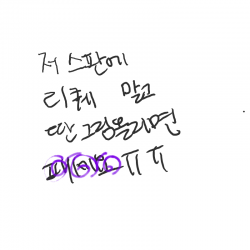 저 스판에
리퀘 말고
딴 그림올리면
ㅠㅠ